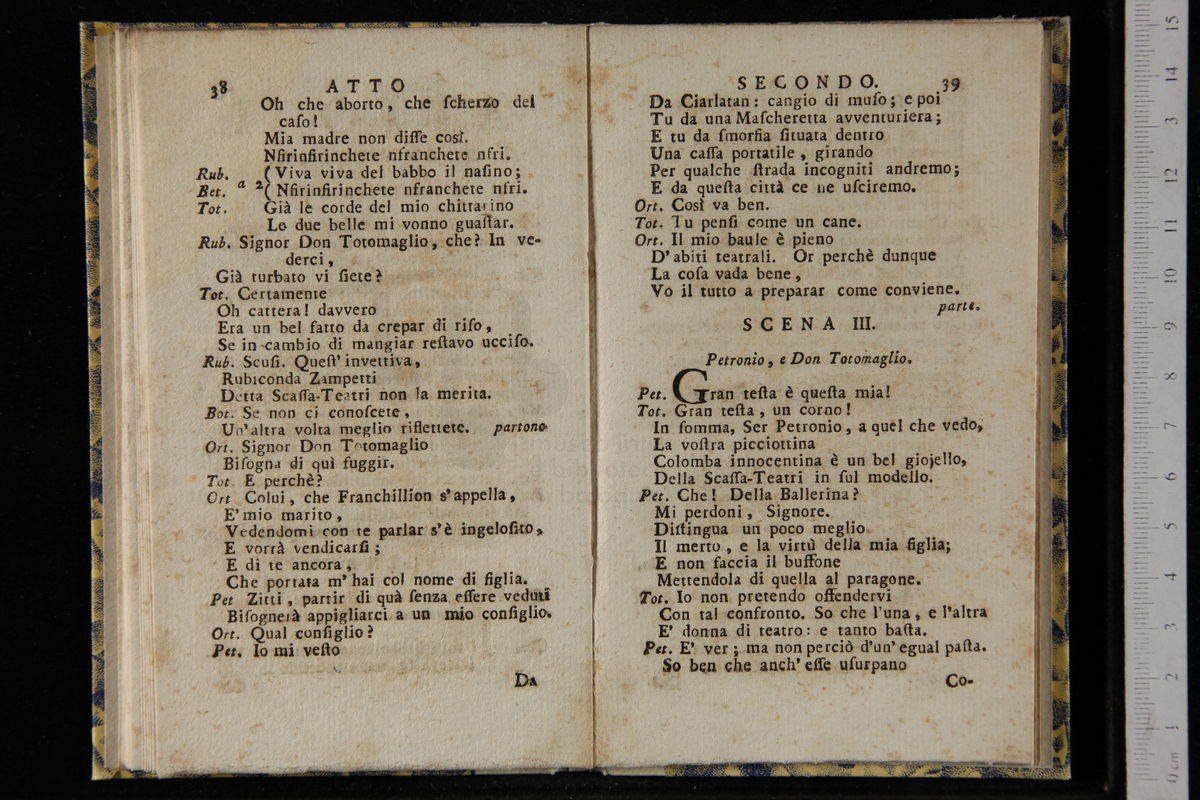 38 ATTO
Oh che aborto, che ſcherzo del
caſo!
Mia madre non diſſe così.
Nfirinfirinchete nfranchete nfri.
Rub. ( Viva viva del babbo il naſino;
Bet. a 2 ( Nfirinfirinchete nfranchete nfri.
Tot. Già le corde del mio chittarino
Le due belle mi vonno guaſtar.
Rub. Signor Don Totomaglio, che? In ve-
derci,
Già turbato vi ſiete?
Tot. Certamente
Oh cattera! davvero
Era un bel fatto da crepar di riſo,
Se in cambio di mangiar reſtavo ucciſo.
Rub. Scuſi. Queſt' invettiva,
Rubiconda Zampetti
Detta Scaſſa-Teatri non la merita.
Bot. Se non ci conoſcete,
Un'altra volta meglio riflettete. partono
Ort. Signor Don Totomaglio
Biſogna di quì fuggir.
Tot E perchè?
Ort Colui, che Franchillion s'appella,
E' mio marito,
Vedendomi con te parlar s'è ingeloſito,
E vorrà vendicarſi;
E di te ancora,
Che portata m' hai col nome di figlia.
Pet Zitti, partir di quà ſenza eſſere veduti
Biſognerà appigliarci a un mio conſiglio.
Ort. Qual conſiglio?
Pet. Io mi veſto
Da
SECONDO. 39
Da Ciarlatan: cangio di muſo; e poi
Tu da una Maſcheretta avventuriera;
E tu da ſmorfia ſituata dentro
Una caſſa portatile, girando
Per qualche ſtrada incogniti andremo;
E da queſta città ce ne uſciremo.
Ort. Così va ben.
Tot. Tu penſi come un cane.
Ort. Il mio baule è pieno
D' abiti teatrali. Or perchè dunque
La coſa vada bene,
Vo il tutto a preparar come conviene.
parte.
SCENA III.
Petronio, e Don Totomaglio.
Pet. Gran teſta è queſta mia!
Tot. Gran teſta, un corno!
In ſomma, Ser Petronio, a quel che vedo,
La voſtra picciottina
Colomba innocentina è un bel giojello,
Della Scaſſa-Teatri in ſul modello.
Pet. Che! Della Ballerina?
Mi perdoni, Signore.
Diſtingua un poco meglio
Il merto, e la virtù della mia figlia;
E non faccia il buffone
Mettendola di quella al paragone.
Tot. Io non pretendo offendervi
Con tal confronto. So che l'una, e l'altra
E' donna di teatro: e tanto baſta.
Pet. E' ver; ma non perciò d'un' egual paſta.
So ben che anch' eſſe uſurpano
Co-
0 cm 1 2 3 4 5 6 7 8 9 10 11 12 13 14 15